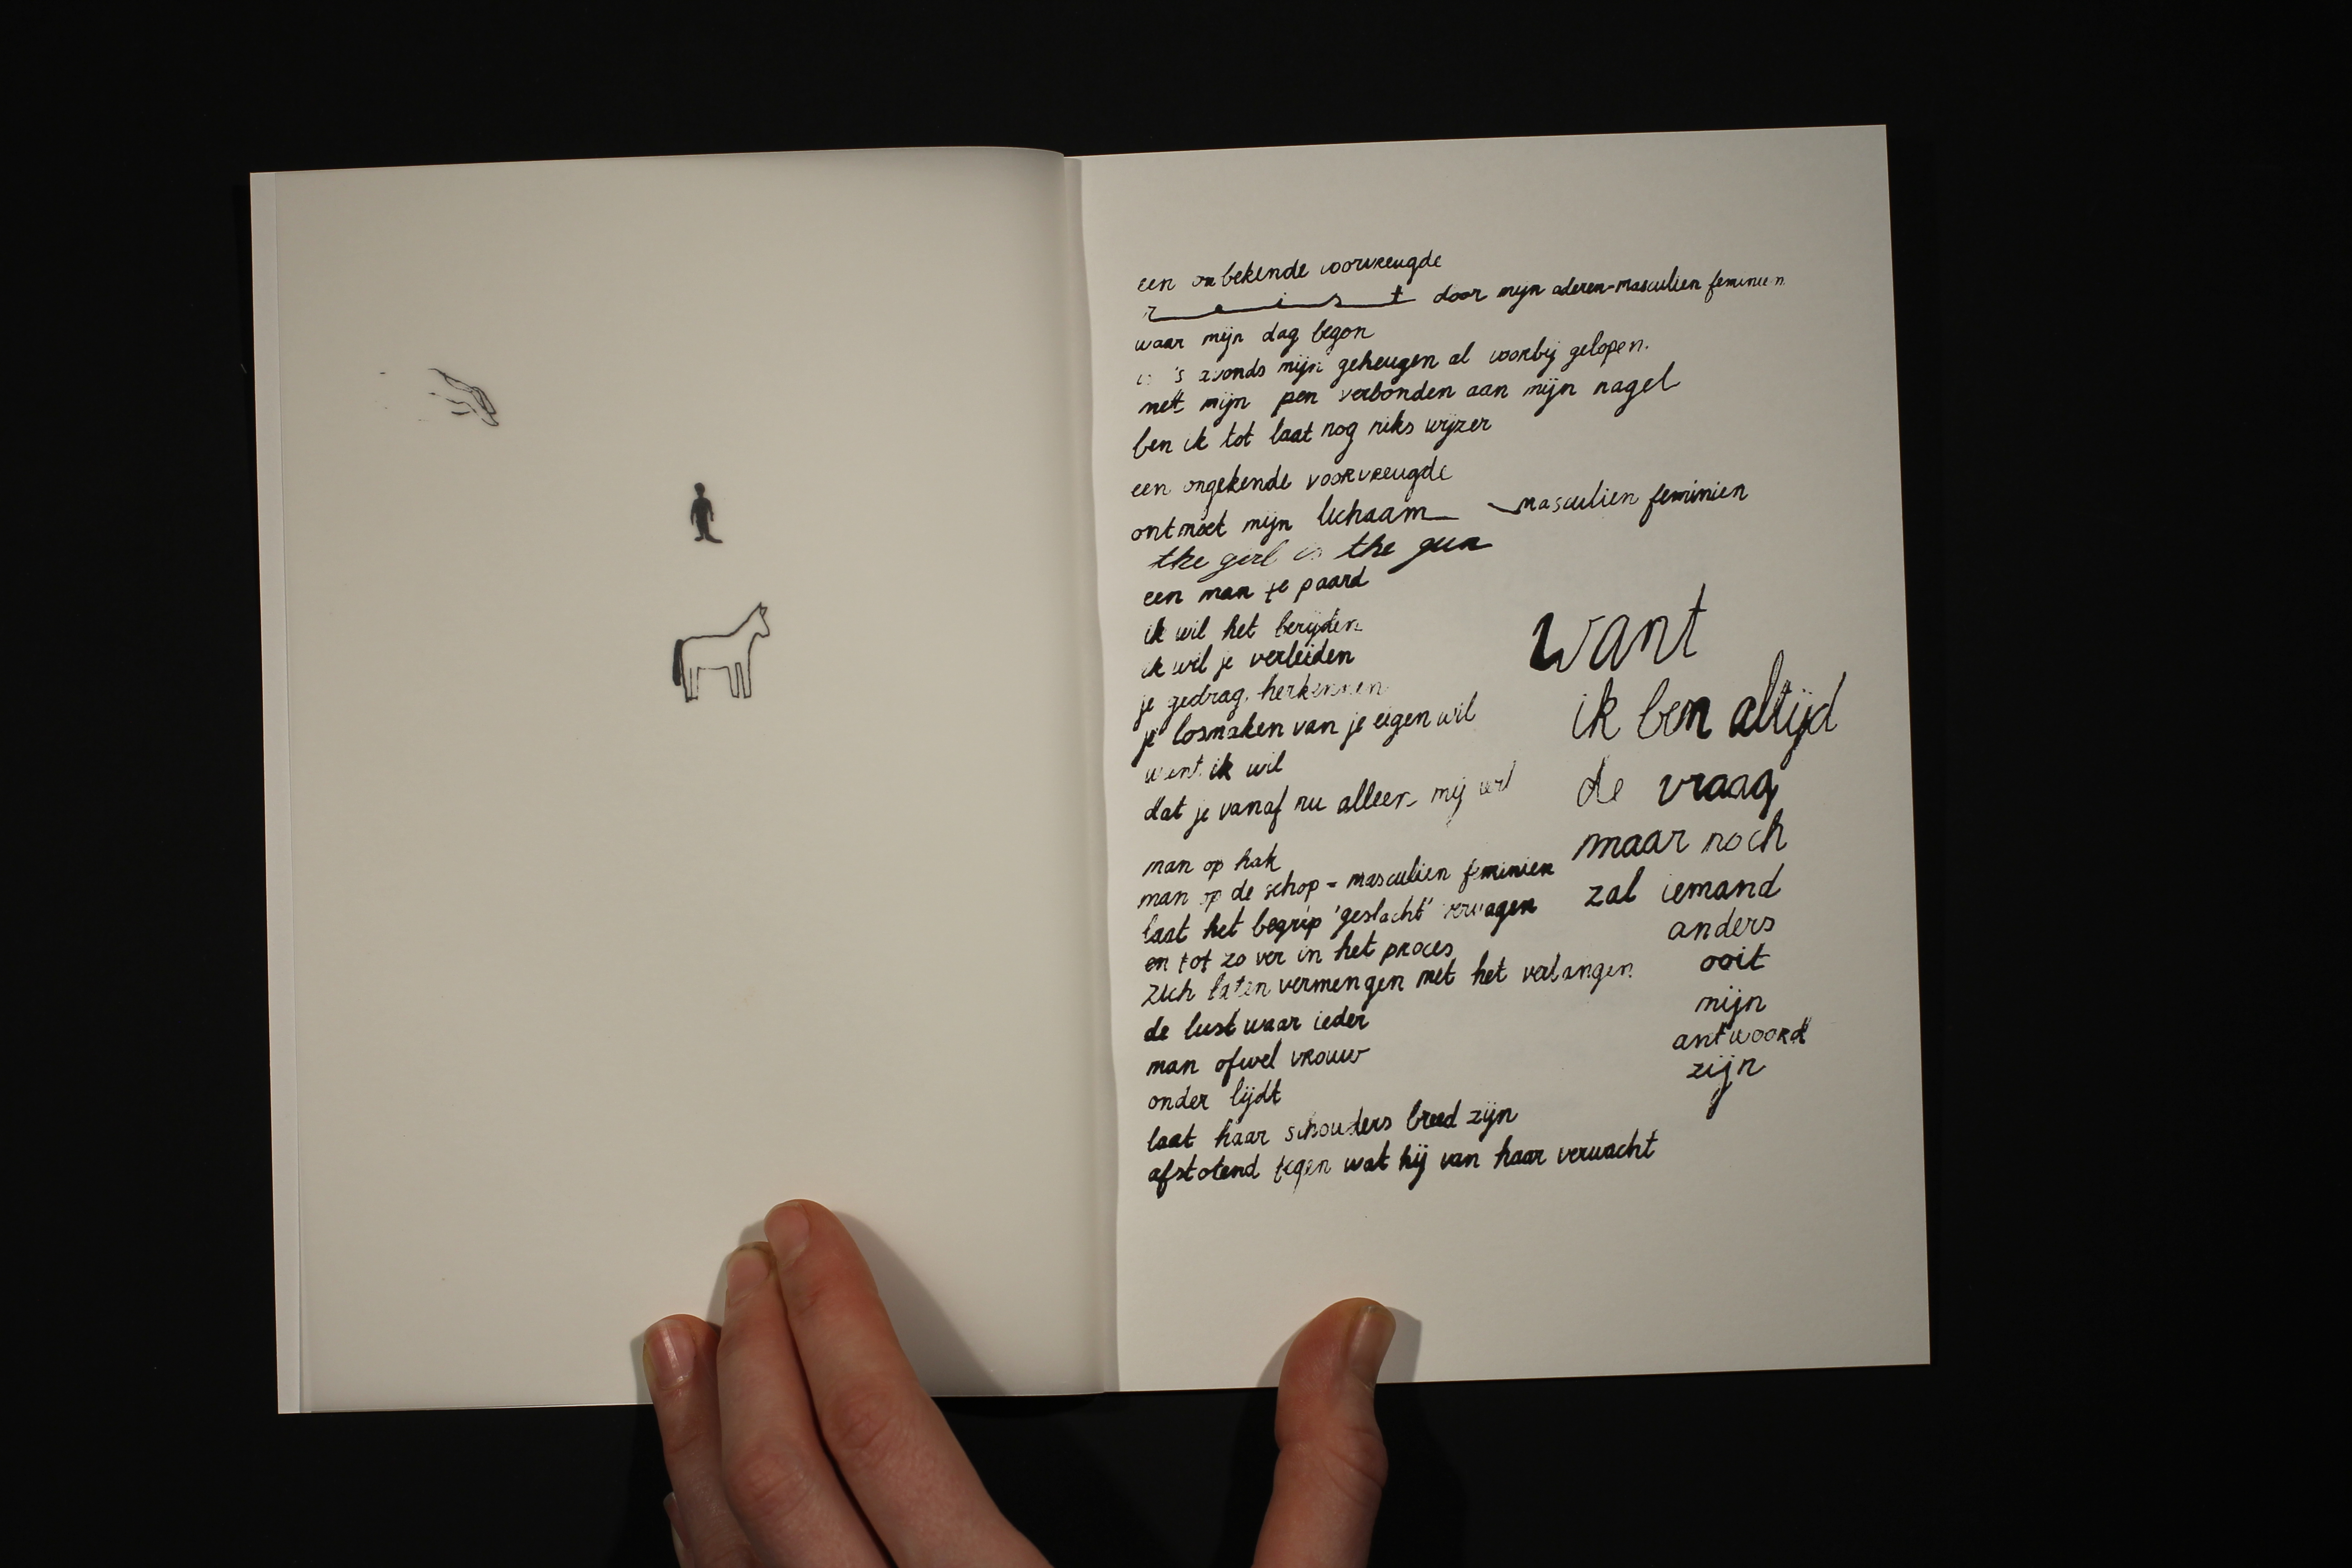 een onbekende voorvreugde
reist door mijn aderen-masculien feminien
waar mijn dag begon
is 's avonds mijn geheugen al voorbij gelopen.
mett mijn pen verbonden aan mijn nagel
ben ik tot laat nog niks wijzer
een ongekende voorvreugde
ontmoet mijn lichaam — masculien feminien
the girl is the gun
een man te paard
ik wil het berijden
ik wil je verleiden
je gedrag herkennen
je losmaken van je eigen wil
want ik wil
dat je vanaf nu alleen mij wil
man op hak
man op de schop - masculien feminien
laat het begrip 'geslacht' vervagen
en tot zo ver in het proces
zich laten vermengen met het verlangen
de lust waar ieder
man ofwel vrouw
onder lijdt
laat haar schouders breed zijn
afstotend tegen wat hij van haar verwacht
want
ik ben altijd
de vraag
maar noch
zal iemand
anders
ooit
mijn
antwoord
zijn